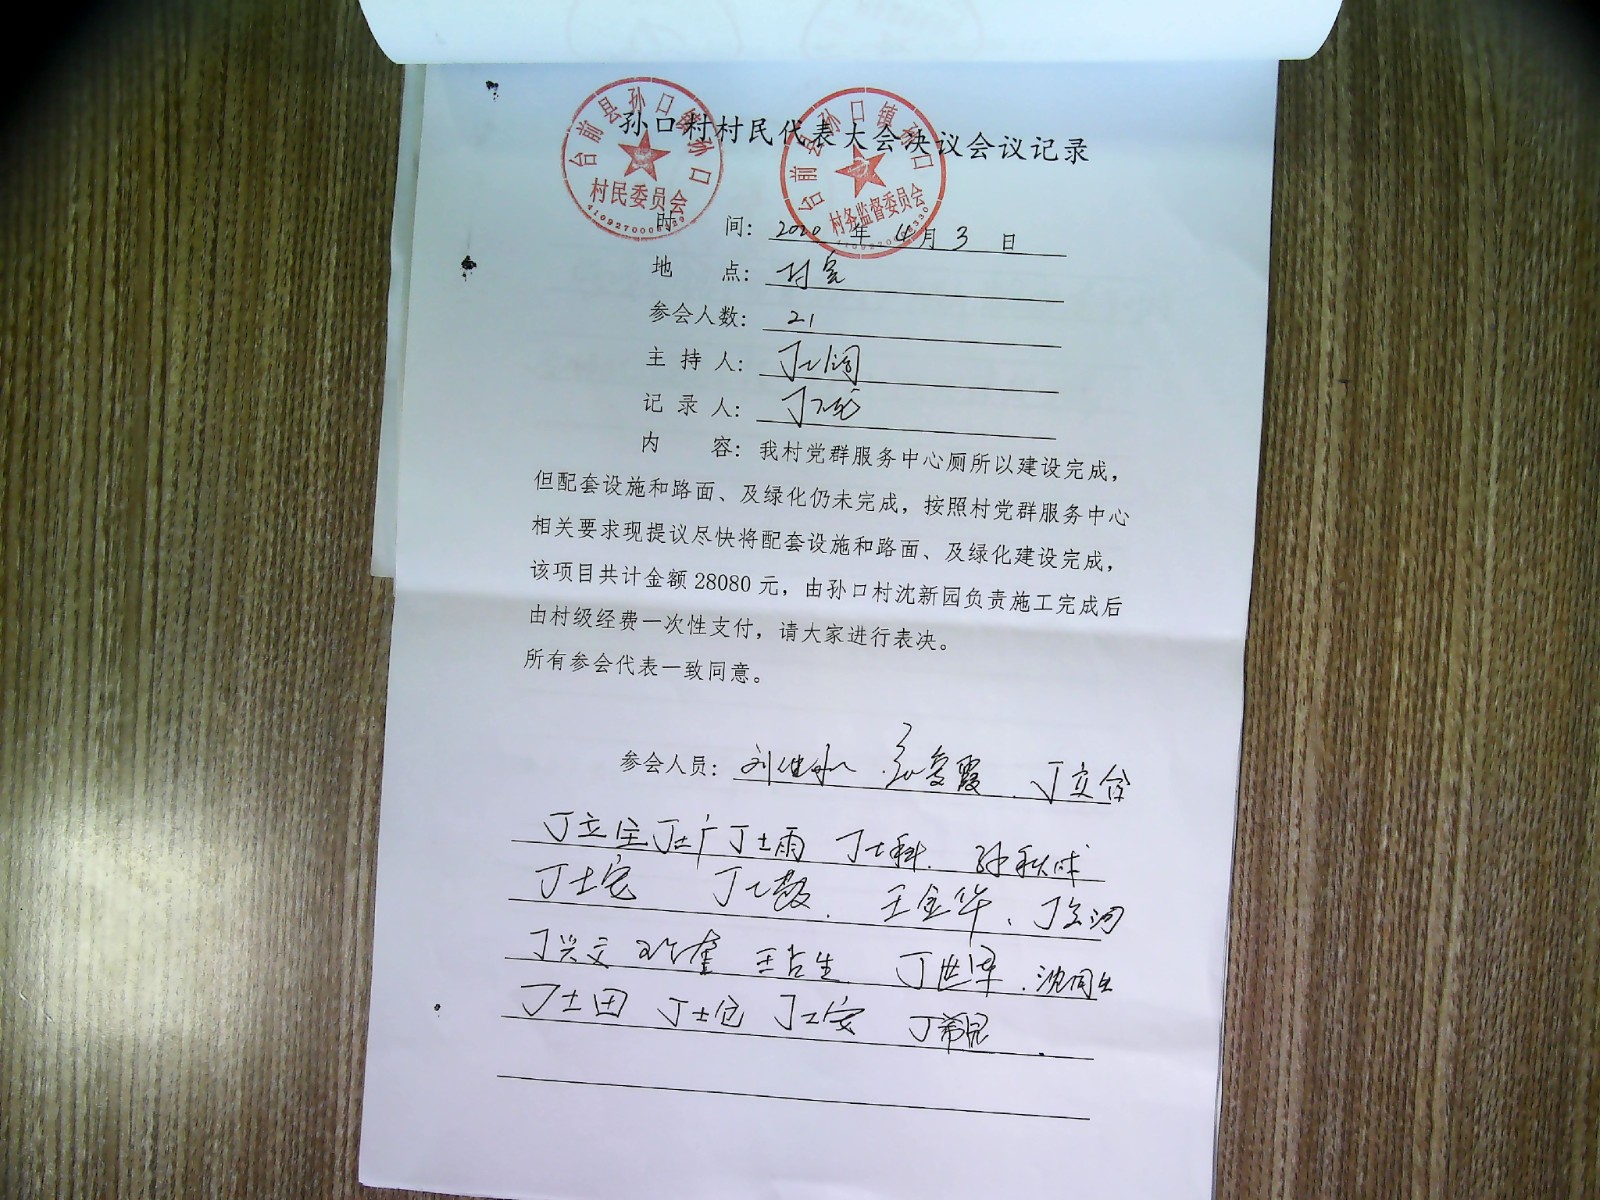 孙口村村民代表大会决议会议记录
台前县孙口镇孙口
村民委员会
台前县孙口镇孙口
村务监督委员会
时 间: 2020 年 4 月 3 日
地 点: 村室
参会人数: 21
主 持 人: 丁士
记 录 人: 丁
内 容: 我村党群服务中心厕所以建设完成,
但配套设施和路面、及绿化仍未完成, 按照村党群服务中心
相关要求现提议尽快将配套设施和路面、及绿化建设完成,
该项目共计金额 28080 元, 由孙口村沈新园负责施工完成后
由村级经费一次性支付, 请大家进行表决。
所有参会代表一致同意。
参会人员:
丁士广 丁士雨 丁士科. 孙秋
丁士宅 王金华、
丁兴文 王占生
丁士田 丁士仓 丁士安